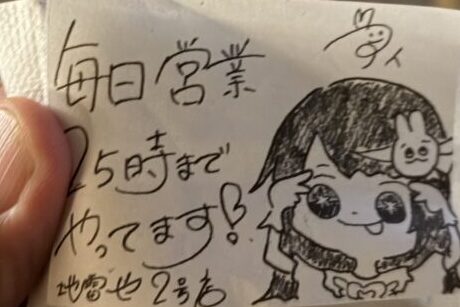 毎日営業
25時まで
やってます!
地雷也2号店